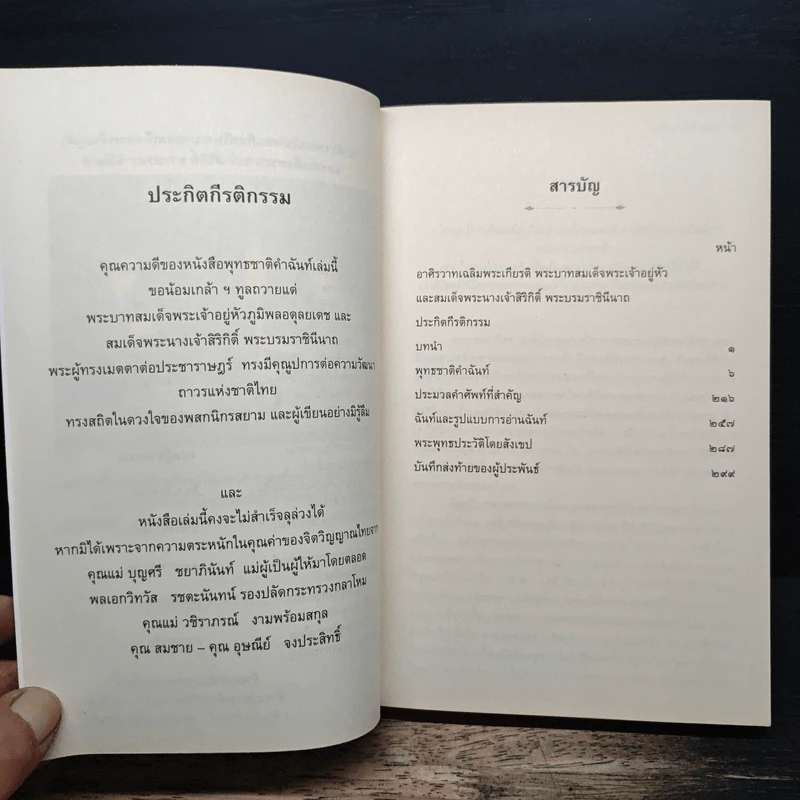 ประกิตกีรติกรรม
คุณความดีของหนังสือพุทธชาติคำฉันท์เล่มนี้
ขอน้อมเกล้า ฯ ทูลถวายแด่
พระบาทสมเด็จพระเจ้าอยู่หัวภูมิพลอดุลยเดช และ
สมเด็จพระนางเจ้าสิริกิติ์ พระบรมราชินีนาถ
พระผู้ทรงเมตตาต่อประชาราษฎร์ ทรงมีคุณูปการต่อความวัฒนา
ถาวรแห่งชาติไทย
ทรงสถิตในดวงใจของพสกนิกรสยาม และผู้เขียนอย่างมิรู้ลืม
และ
หนังสือเล่มนี้คงจะไม่สำเร็จลุล่วงได้
หากมิได้เพราะจากความตระหนักในคุณค่าของจิตวิญญาณไทยจาก
คุณแม่ บุญศรี ชยาภินันท์ แม่ผู้เป็นผู้ให้มาโดยตลอด
พลเอกวิทวัส รชตะนันทน์ รองปลัดกระทรวงกลาโหม
คุณแม่ วชิราภรณ์ งามพร้อมสกุล
คุณ สมชาย – คุณ อุษณีย์ จงประสิทธิ์
สารบัญ
หน้า
อาศิรวาทเฉลิมพระเกียรติ พระบาทสมเด็จพระเจ้าอยู่หัว
และสมเด็จพระนางเจ้าสิริกิติ์ พระบรมราชินีนาถ
ประกิตกีรติกรรม
บทนำ ๑
พุทธชาติคำฉันท์ ๖
ประมวลคำศัพท์ที่สำคัญ ๒๑๖
ฉันท์และรูปแบบการอ่านฉันท์ ๒๕๗
พระพุทธประวัติโดยสังเขป ๒๘๗
บันทึกส่งท้ายของผู้ประพันธ์ ๒๙๙